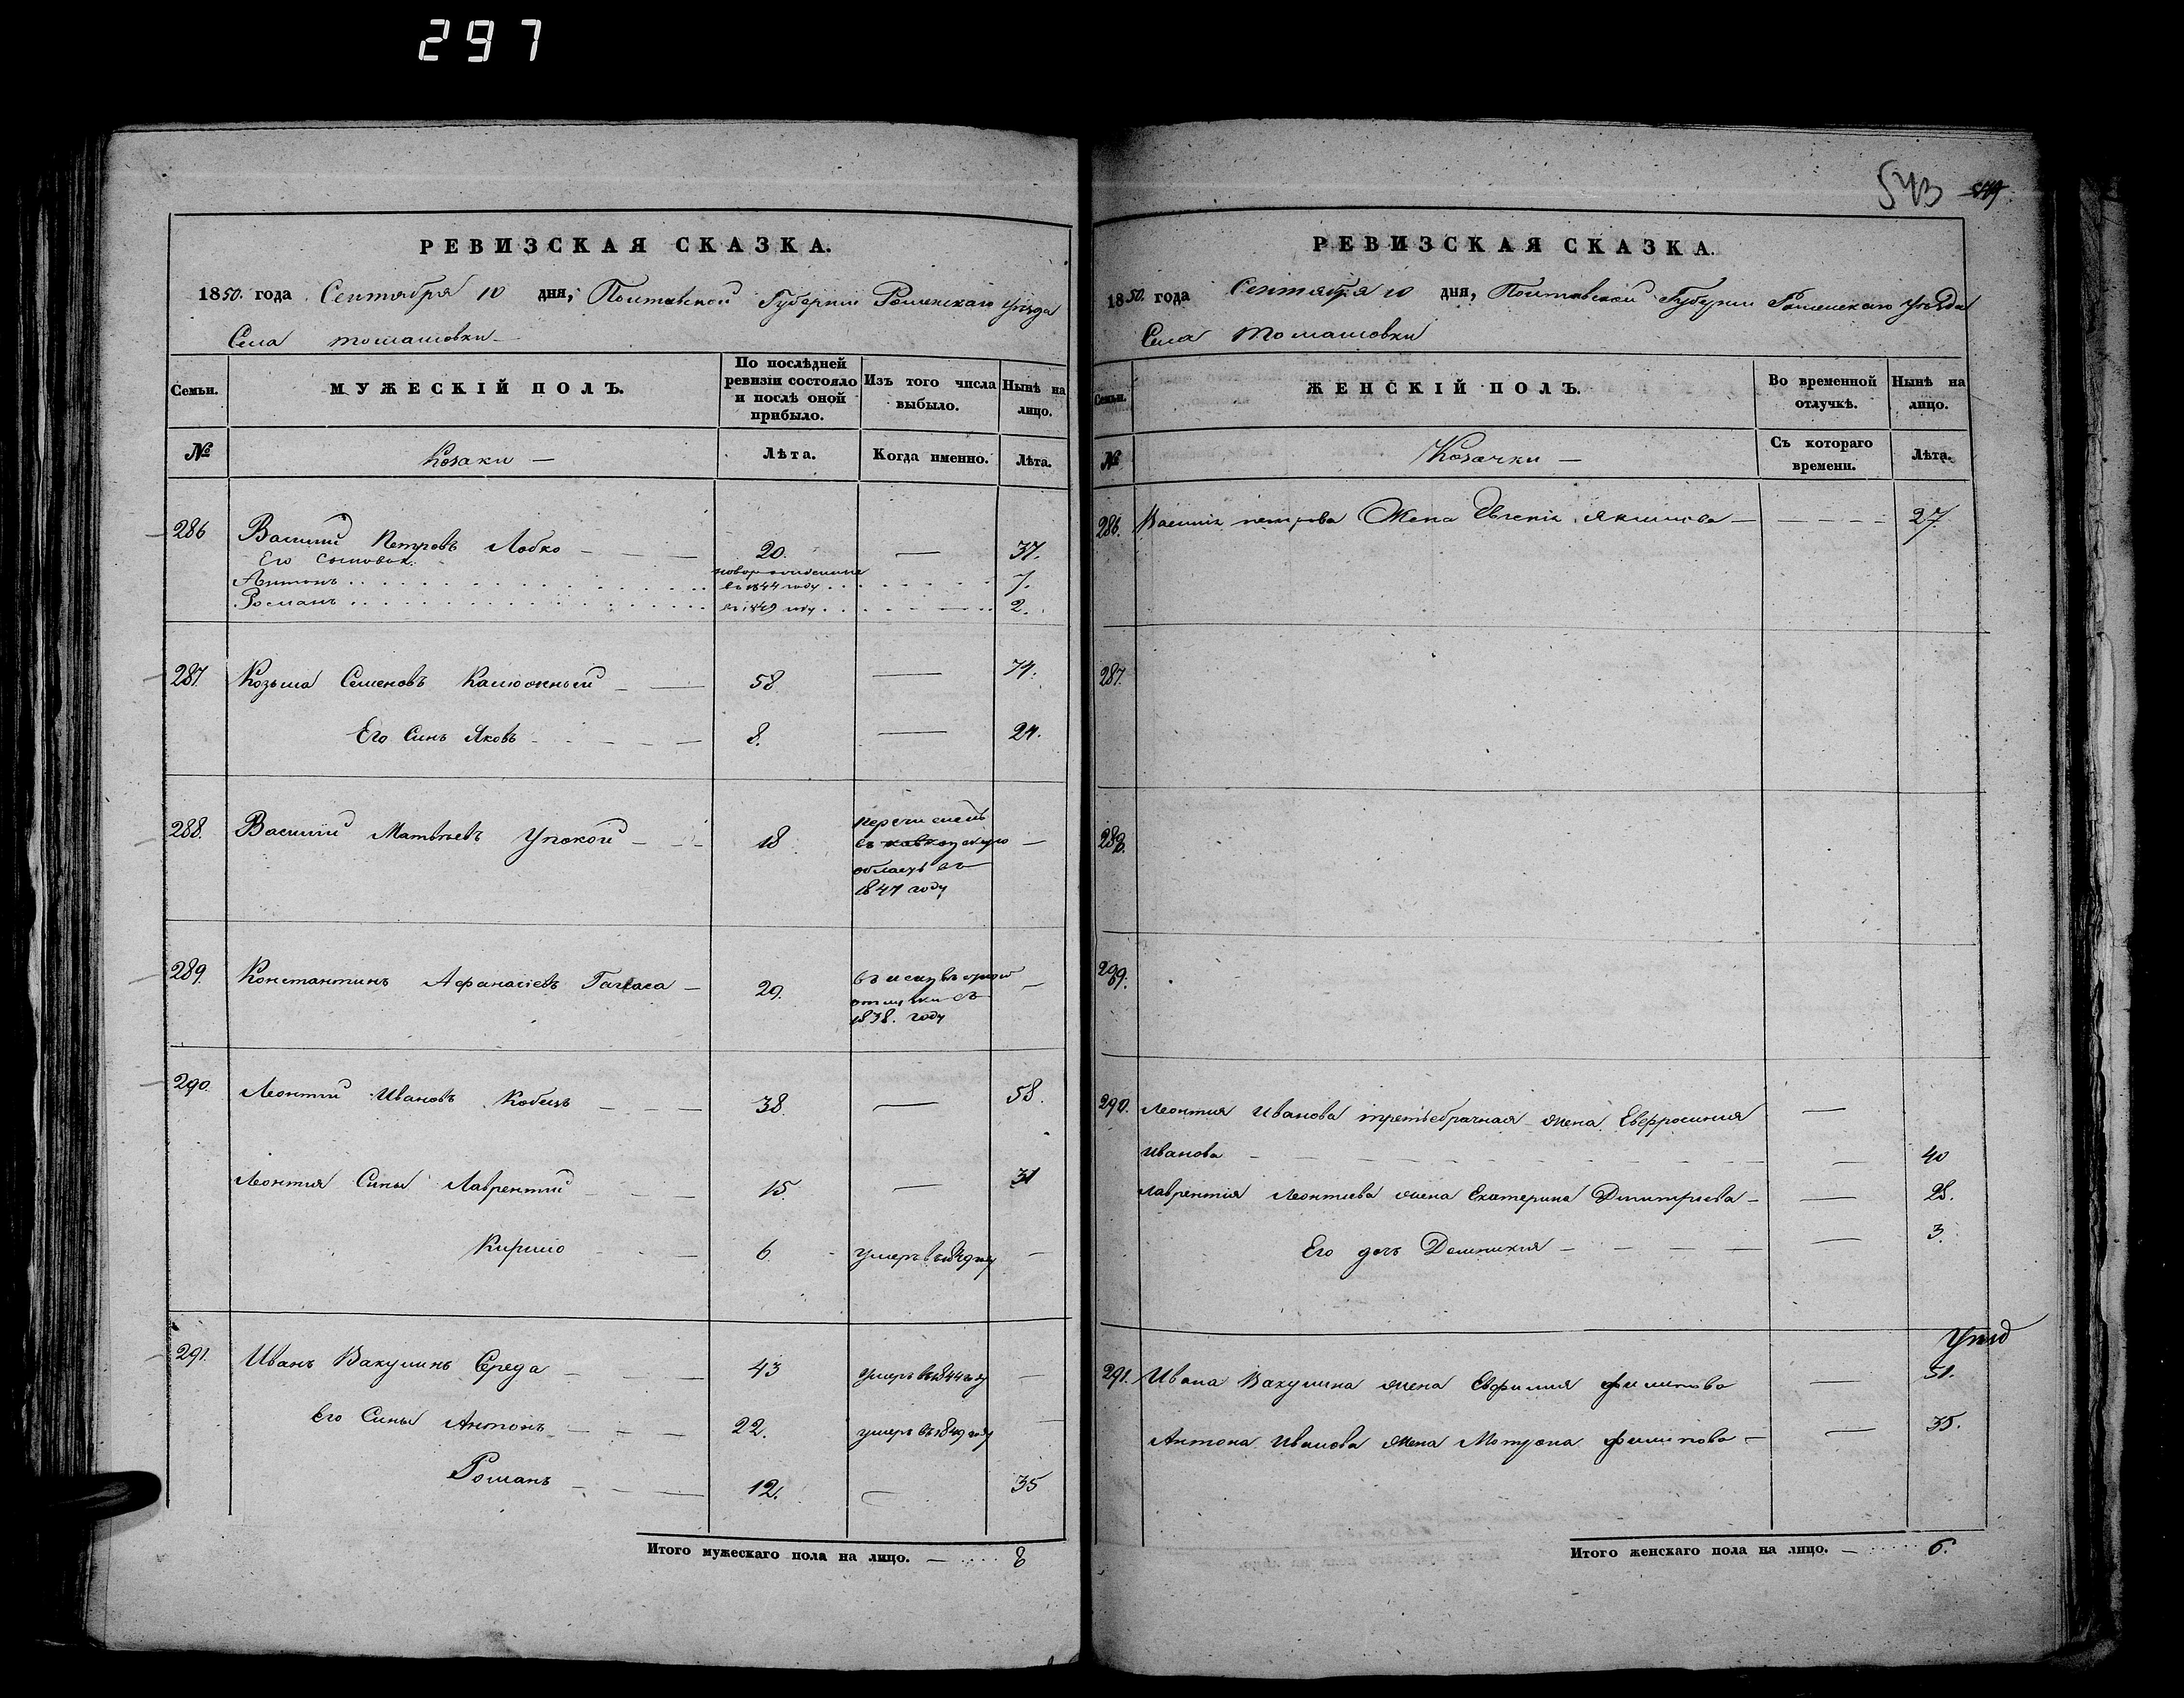 297
543 544
РЕВИЗСКАЯ СКАЗКА.
1850. года Сентября 10 дня, Полтавской Губернии Роменскаго уѣзда
Села Томашовки
Семьи. МУЖЕСКІЙ ПОЛЪ. По послѣдней ревизіи состояло и послѣ оной прибыло. Изъ того числа выбыло. Нынѣ на лицо.
№ Козаки — Лѣта. Когда именно. Лѣта.
286 Василий Петровъ Лобко 20. — 37.
Его сыновья новорожденные
Антонъ въ 1844 году 7.
Романъ въ 1849 году 2.
287. Козьма Семеновъ 58 — 74.
Его Синъ Яковъ 8. — 24.
288. Василий Матвѣевъ Упокой 18 перечисленъ въ кавказскую область въ 1847 году —
289. Константинъ Афанасіевъ 29. отлучки съ 1838. году —
290. Леонтий Ивановъ Кобецъ 38. — 58.
Леонтия Сины Лаврентий 15. — 31
Кирило 6 умеръ въ 1849 году —
291. Иванъ Вакулинъ Середа 43 умеръ въ 1844 году —
Его Сины Антонъ 22. умеръ въ 1849 году —
Романъ 12. — 35
Итого мужескаго пола на лицо. — 8
РЕВИЗСКАЯ СКАЗКА.
1850. года Сентября 10 дня, Полтавской Губернии Роменскаго уѣзда
Села Томашовки
Семьи. ЖЕНСКІЙ ПОЛЪ. Во временной отлучкѣ. Нынѣ на лицо.
№ Козачки — Съ котораго времени. Лѣта.
286. Василія петрова Жена Евгенія Якимова — 27.
287.
288.
289.
290. Леонтия Иванова третьебрачная жена Евфросиния —
Иванова — 40
Лаврентія Леонтиева жена Екатерина Димитриева — 28.
Его дочь Домникия — 3.
291. Ивана Вакулина жена Евфимия филипова — 51.
Антона Иванова жена Мотрона филипова — 35.
Итого женскаго пола на лицо. — 6.